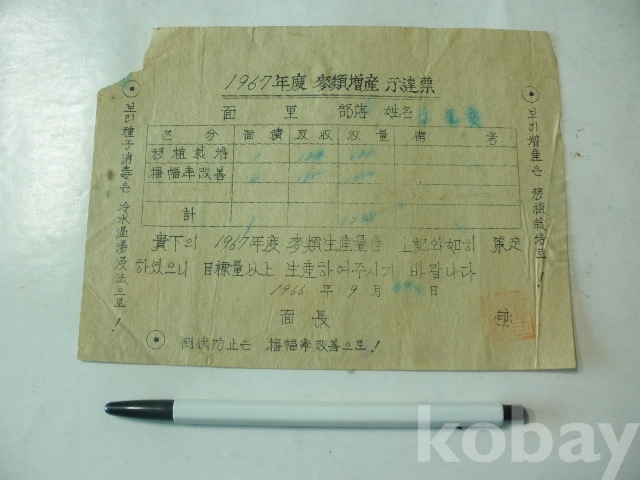 1967年度 麥類增産 示達票
面 里 部落 姓名
區 分 面積 反收 收量 備 考
移植栽培
播幅率改善
計
貴下의 1967年度 麥類生産量을 上記와如히 策定
하였으니 目標量以上 生産하여주시기 바랍니다
1966 年 9 月 日
面 長
倒伏防止는 播幅率改善으로!
보리種子消毒은 冷水溫湯浸法으로!
보리增産은 移植栽培로!
kobay